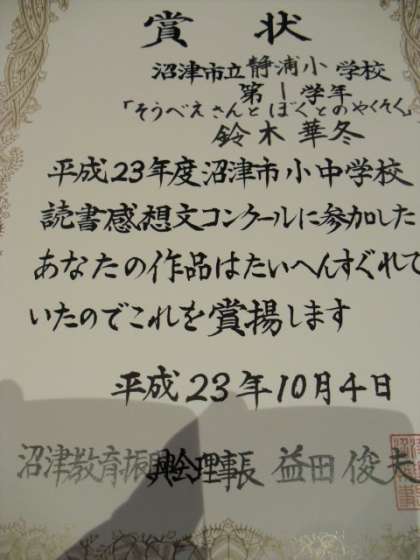 賞状
沼津市立静浦小学校
第1学年
「そうべえさんとぼくとのやくそく」
鈴木華冬
平成23年度沼津市小中学校
読書感想文コンクールに参加した
あなたの作品はたいへんすぐれて
いたのでこれを賞揚します
平成23年10月4日
沼津教育振興会理事長 益田俊夫